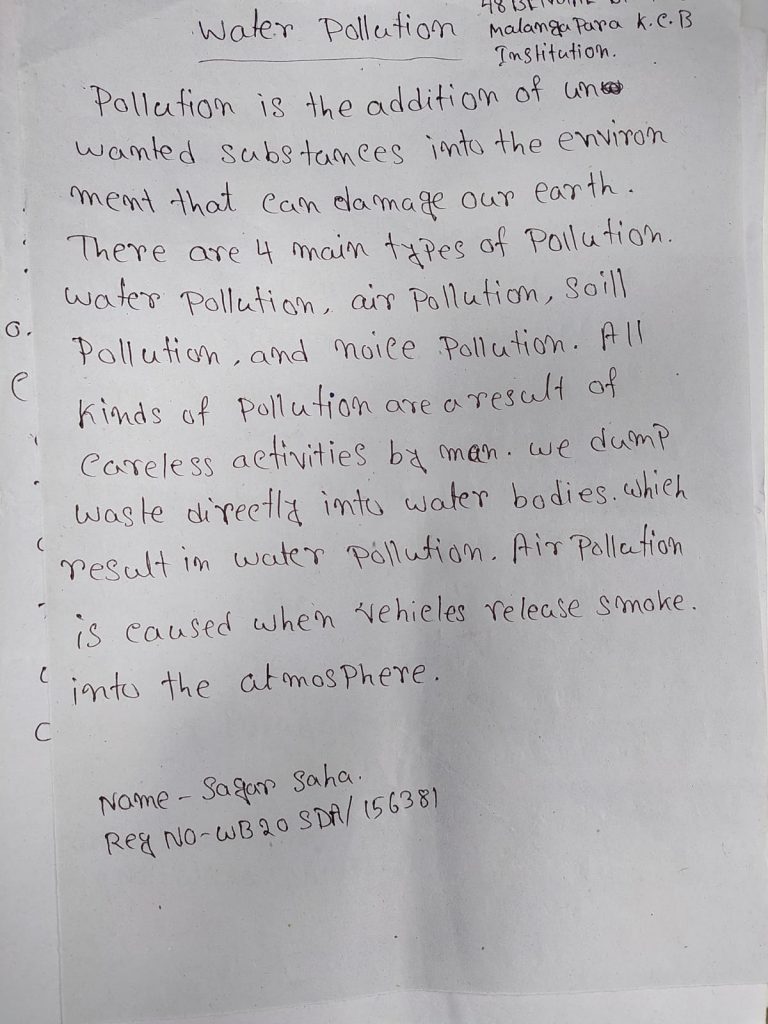 Water Pollution
Malangapara K.C.B
Institution.
Pollution is the addition of un
wanted substances into the environ
ment that can damage our earth.
There are 4 main types of Pollution.
water Pollution, air Pollution, Soill
Pollution, and noice Pollution. All
kinds of Pollution are a result of
careless activities by man. we dump
waste directly into water bodies. which
result in water Pollution. Air Pollution
is caused when vehicles release smoke.
into the atmosphere.
Name - Sagar Saha.
Reg NO-WB20 SDA/156381